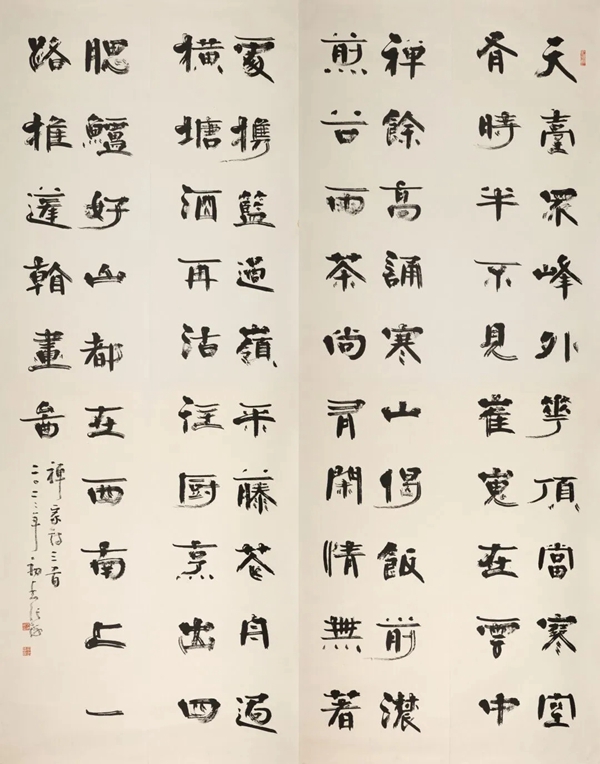 天臺眾峰外華頂當寒空
有時半不見崔嵬在雲中
禪餘高誦寒山偈飯前濃
煎谷雨茶尚有閑情無著
處攜籃過嶺采藤花舟過
橫塘酒再沽往厨烹出四
腮鱸好山都在西南上一
路推蓬看畫啚
禪家詩三首
二〇二二年初春